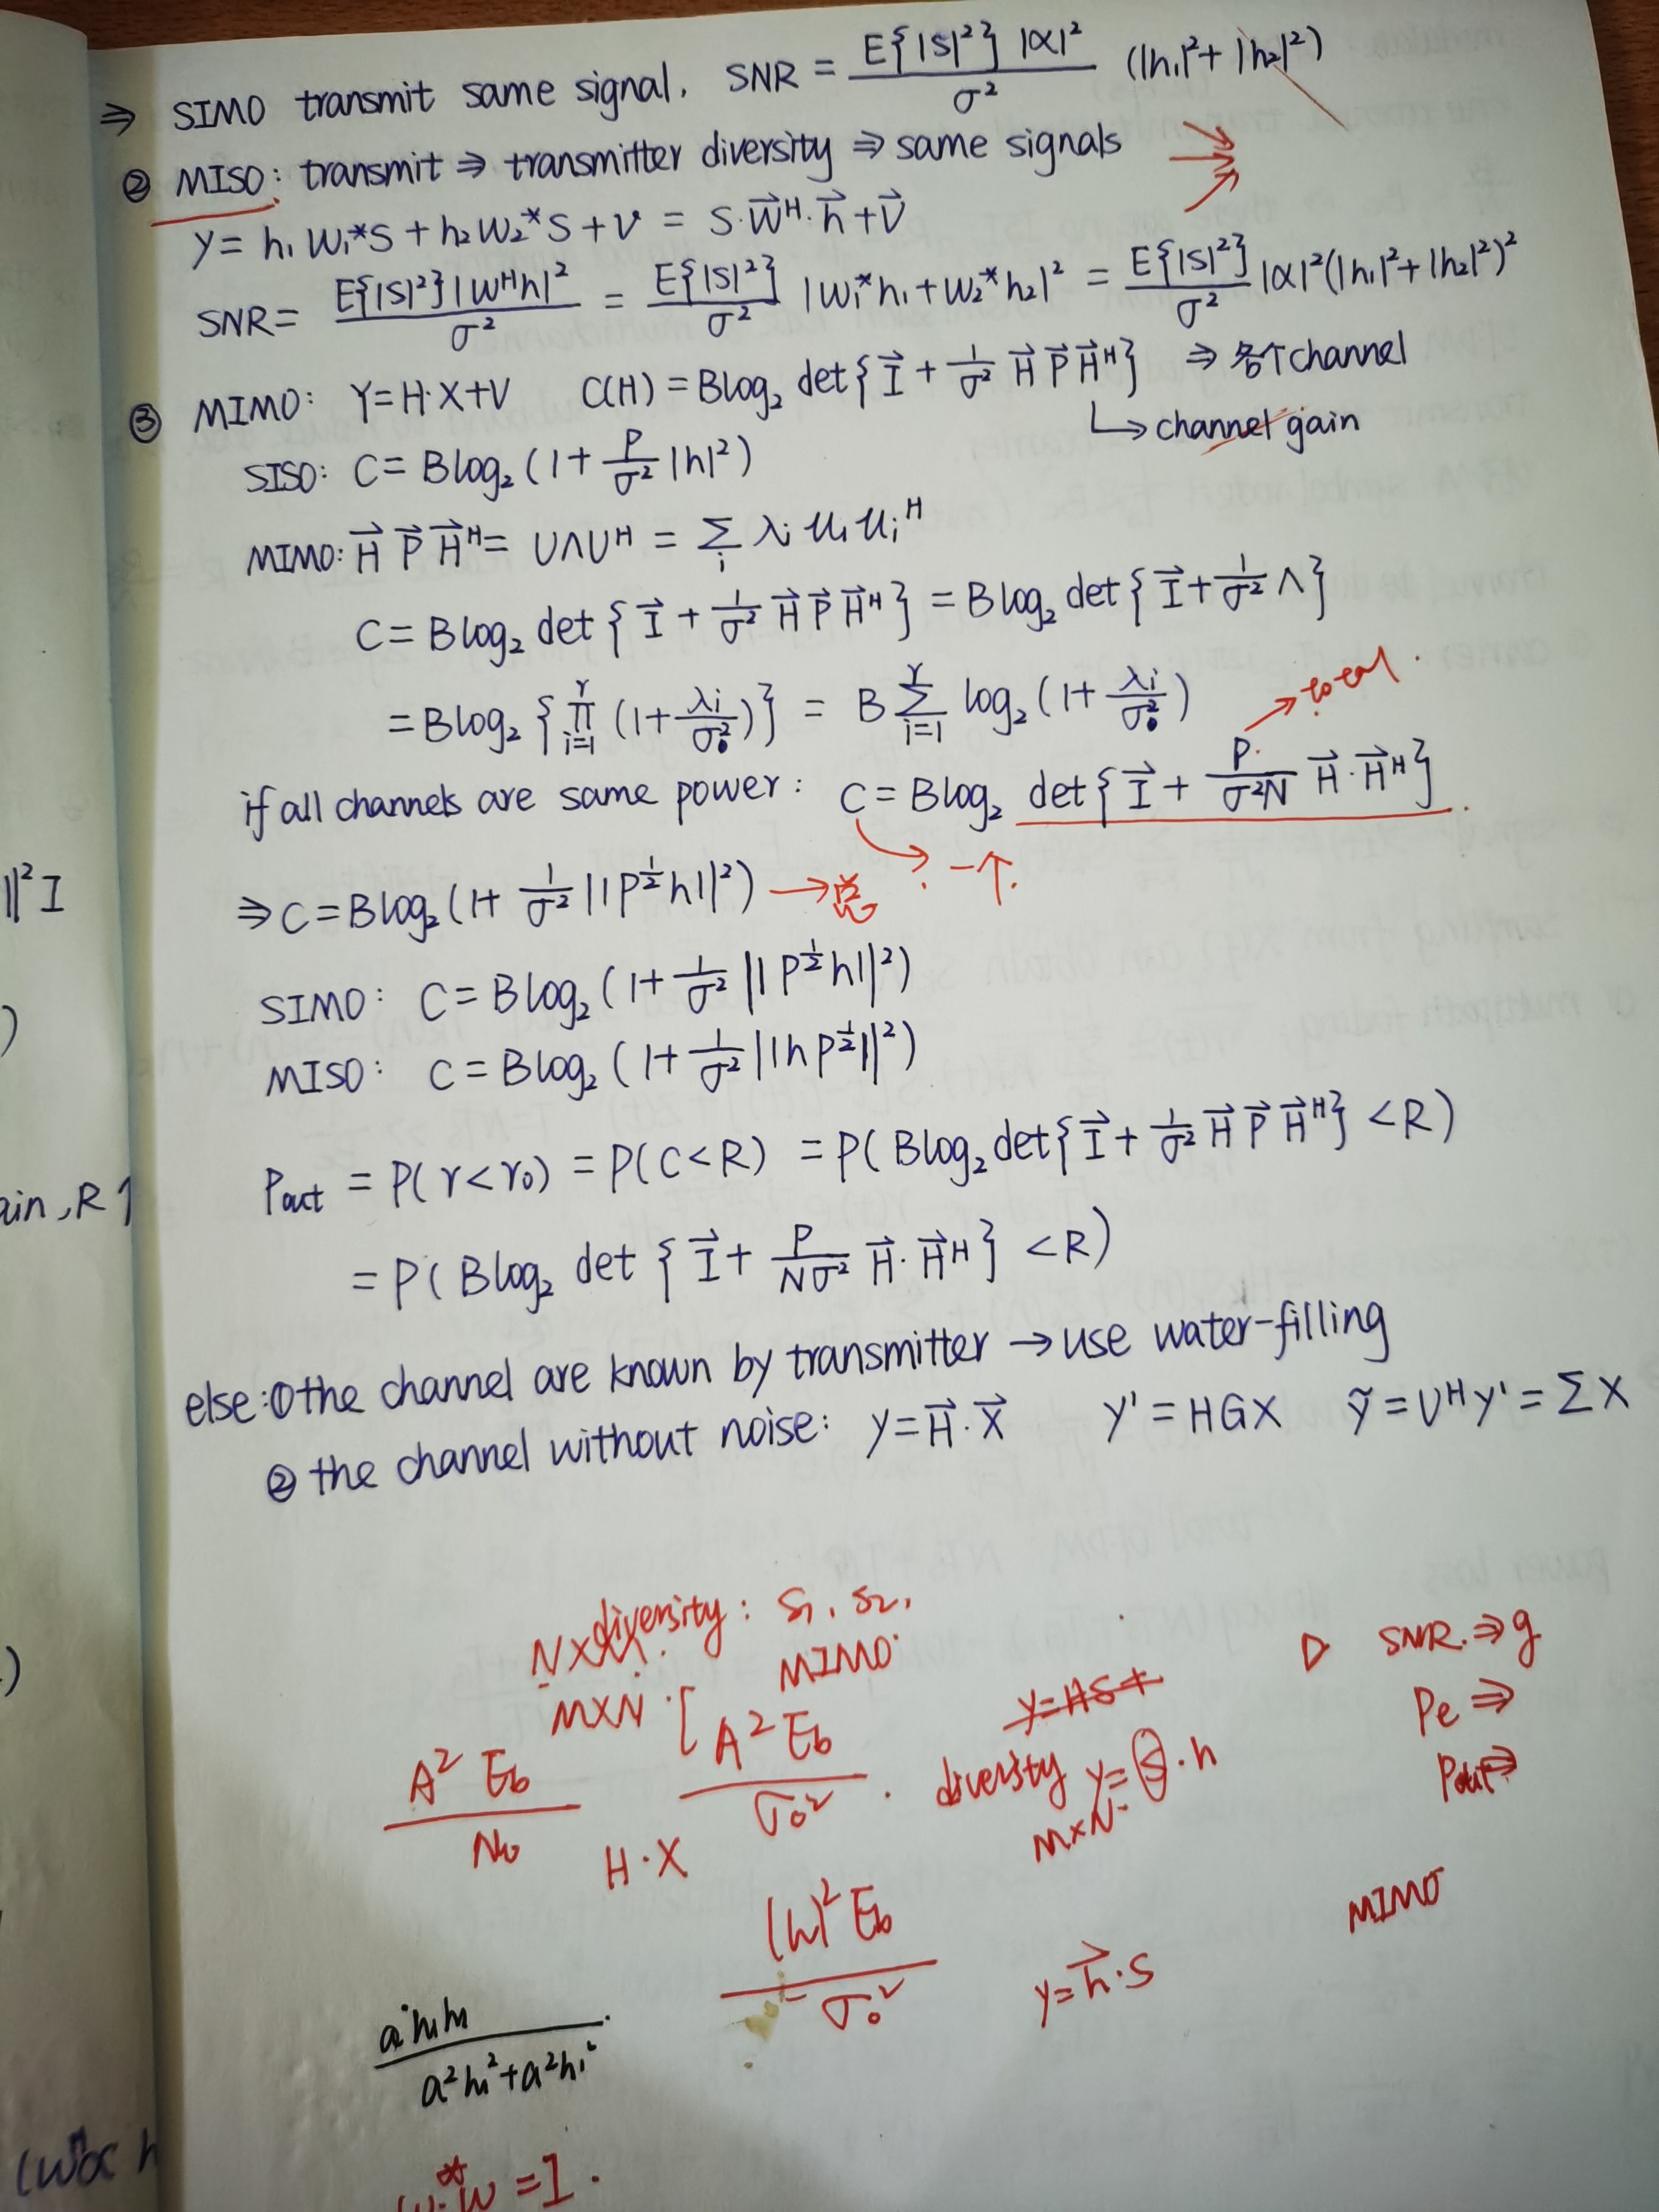 ⇒ SIMO transmit same signal. SNR = E{|S|²} |α|² / σ² (|h₁|² + |h₂|²)
② MISO: transmit ⇒ transmitter diversity ⇒ same signals
y = h₁ W₁*S + h₂ W₂*S + V = S·W⃗ᴴ·h⃗ + V⃗
SNR = E{|S|²}|Wᴴh|² / σ² = E{|S|²} / σ² |W₁*h₁ + W₂*h₂|² = E{|S|²} / σ² |α|²(|h₁|² + |h₂|²)²
③ MIMO: Y = H·X + V C(H) = Blog₂ det{I⃗ + 1/σ² H⃗ P⃗ H⃗ᴴ} ⇒ 各个channel
↳ channel gain
SISO: C = Blog₂(1 + P/σ² |h|²)
MIMO: H⃗ P⃗ H⃗ᴴ = UΛUᴴ = Σᵢ λᵢ uᵢ uᵢᴴ
C = Blog₂ det{I⃗ + 1/σ² H⃗ P⃗ H⃗ᴴ} = Blog₂ det{I⃗ + 1/σ² Λ}
= Blog₂ {∏ᵢ₌₁ʳ (1 + λᵢ/σ₀²)} = B Σᵢ₌₁ʳ log₂(1 + λᵢ/σ₀²)
→ total.
if all channels are same power: C = Blog₂ det{I⃗ + P/σ²N H⃗·H⃗ᴴ}
? 一个.
⇒ C = Blog₂(1 + 1/σ² ||P^½ h||²) → 总
SIMO: C = Blog₂(1 + 1/σ² ||P^½ h||²)
MISO: C = Blog₂(1 + 1/σ² ||h P^½||²)
Pout = P(r < r₀) = P(C < R) = P(Blog₂ det{I⃗ + 1/σ² H⃗ P⃗ H⃗ᴴ} < R)
= P(Blog₂ det{I⃗ + P/Nσ² H⃗·H⃗ᴴ} < R)
else: ① the channel are known by transmitter → use water-filling
② the channel without noise: y = H⃗·X⃗ y' = HGX ỹ = Uᴴy' = ΣX
diversity: S₁, S₂,
MIMO
M×N
A² Eb / N₀
A² Eb / σ₀²
H·X
y = HS +
diversity y = S·h
M×N
SNR ⇒ g
Pe ⇒
Pout ⇒
MIMO
(h)² Eb / σ₀²
y = h⃗·S
a²h₁²+a²h₁²
W*W = I.
||²I
ain, R↑